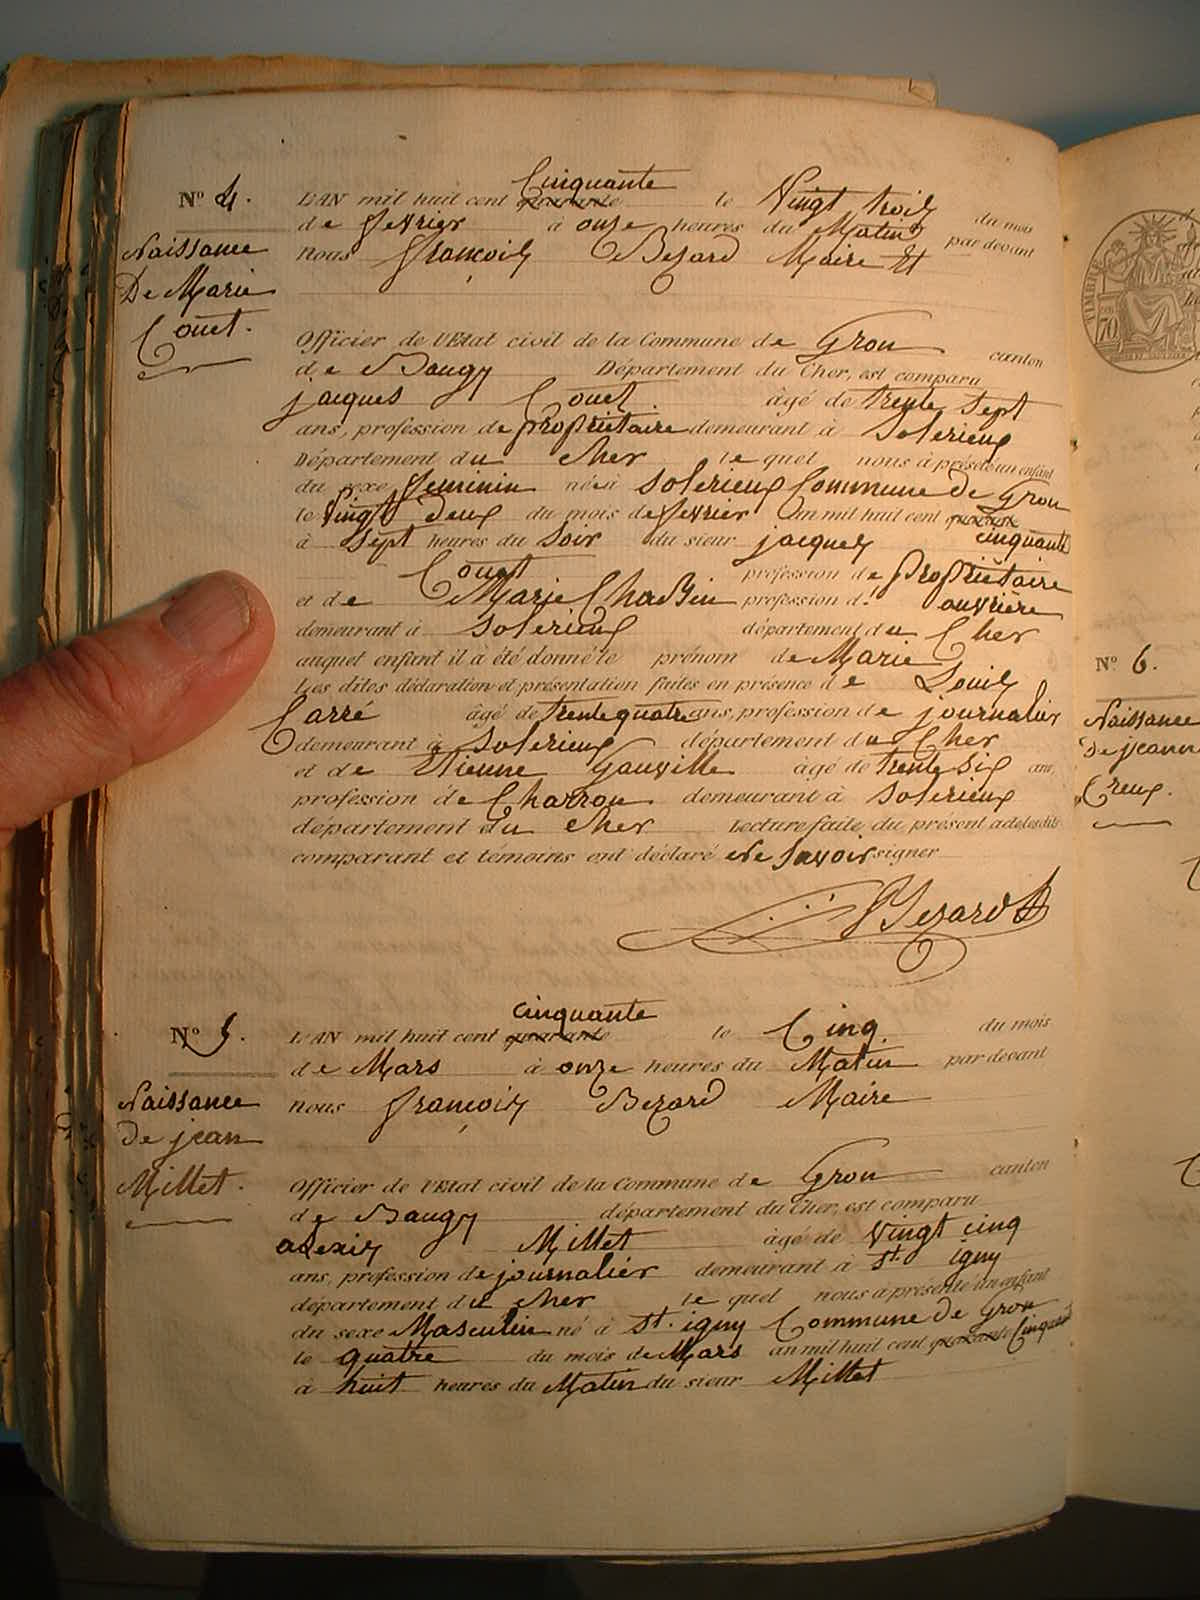 Nº 4.
Naissance
De Marie
Couet.
L'AN mil huit cent quarante Cinquante le Vingt trois du mois
de fevrier à onze heures du Matin par devant
nous françois Bezard Maire Et
Officier de l'Etat civil de la Commune de Gron canton
de Baugy Département du Cher, est comparu
jacques Couet âgé de trente sept
ans, profession de propriétaire demeurant à Solerieux
Département du Cher le quel nous à présenté un enfant
du sexe feminin né à Solerieux Commune de Gron
le Vingt deux du mois de fevrier an mil huit cent quarante cinquante
à Sept heures du Soir du sieur jacques
Couet profession de propriétaire
et de Marie Chabin profession d' ouvrière
demeurant à Solerieux département du Cher
auquel enfant il à été donné le prénom de Marie
Les dites déclaration et présentation faites en présence de Louis
Carré âgé de trente quatre ans, profession de journalier
demeurant à Solerieux département du Cher
et de Etienne Gauville âgé de trente Six ans,
profession de Charron demeurant à Solerieux
département du Cher Lecture faite du présent acte les dits
comparant et témoins ont déclaré Ne Savoir signer
Bezard
Nº 5.
Naissance
de jean
Millet.
L'AN mil huit cent quarante cinquante le Cinq du mois
de Mars à onze heures du Matin par devant
nous françois Bezard Maire
Officier de l'Etat civil de la Commune de Gron canton
de Baugy département du Cher, est comparu
alexis Millet âgé de Vingt cinq
ans, profession de journalier demeurant à St. igny
département du Cher le quel nous à présenté un enfant
du sexe Masculin né à St. igny Commune de Gron
le quatre du mois de Mars an mil huit cent quarante Cinquante
à huit heures du Matin du sieur Millet
TIMBRE
70
Nº 6.
Naissance
De jeanne
Creux.